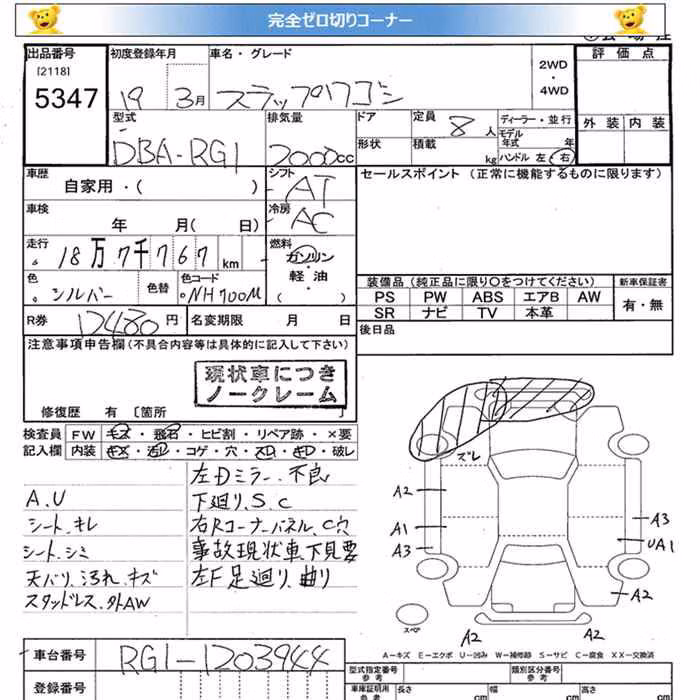 完全ゼロ切りコーナー
出品番号
[2118]
5347
初度登録年月
19 3月
車名・グレード
ステップワゴン
2WD
・
4WD
評価点
外装 内装
型式
DBA-RG1
排気量
2000cc
ドア
形状
定員 8人
積載 kg
ディーラー・並行
モデル年式 年
ハンドル 左・右
車歴
自家用・( )
シフト
AT
セールスポイント (正常に機能するものに限ります)
車検
年 月( 日)
冷房
AC
走行
18万7千767km
燃料
ガソリン
・
軽・油
( )
色
シルバー
色替
色コード
NH700M
装備品 (純正品に限り○をつけてください)
新車保証書
PS PW ABS エアB AW
SR ナビ TV 本革
有・無
R券 12480円
名変期限 月 日
後日品
注意事項申告欄(不具合内容等は具体的に記入して下さい)
現状車につき
ノークレーム
修復歴 有 〔箇所 〕
検査員 FW キズ・飛石・ヒビ割・リペア跡・×要
記入欄 内装 キズ・汚レ・コゲ・穴・スレ・キレ・破レ
A.U
シート.キレ
シート.シミ
天バリ.汚れ.キズ
スタッドレス.外AW
左Dミラー.不良
下廻り.S.C
右Rコーナーパネル.C穴
事故現状車.下見要
左F足廻り.曲り
ズレ
A2
A1
A3
A3
UA1
A2
A2
A2
スペア
A-キズ E-エクボ U-凹み W-補修跡 S-サビ C-腐食 XX-交換済
車台番号
RG1-1203944
登録番号
型式指定番号
参考
類別区分番号
参考
車庫証明用
参考
長さ cm
幅 cm
高さ cm